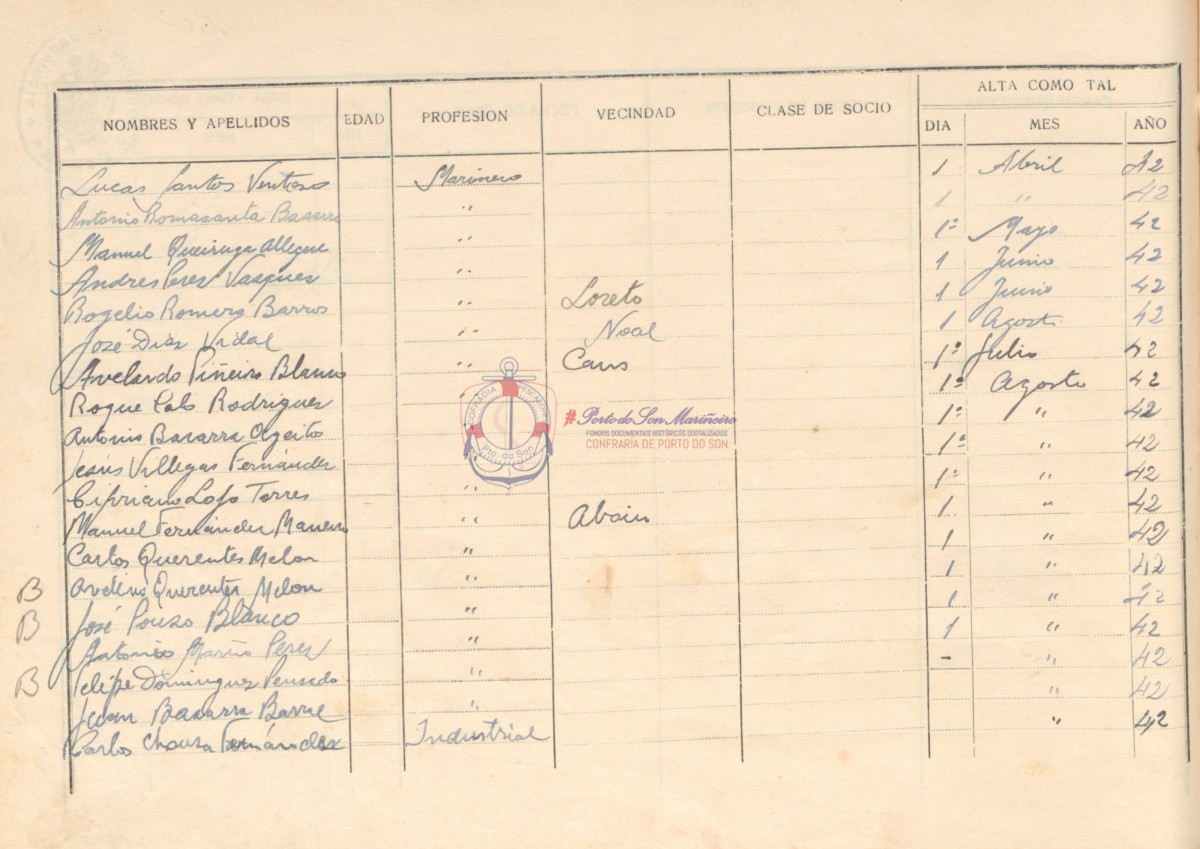 ALTA COMO TAL
NOMBRES Y APELLIDOS EDAD PROFESION VECINDAD CLASE DE SOCIO DIA MES AÑO
Lucas Santos Ventoso Marinero 1 Abril 42
Antonio Romasanta Basarra " 1 " 42
Manuel Queiruga Allegue " 1º Mayo 42
Andres Peres Vasques " 1 Junio 42
Rogelio Romero Barros " Loreto 1 Junio 42
José Dias Vidal " Noal 1 Agosto 42
Avelardo Piñeiro Blanco " Cans 1º Julio 42
Roque Polo Rodrigues 1º Agosto 42
Antonio Basarra Ageitos 1º " 42
Jesús Villegas Fernándes 1º " 42
Cipriano Lojo Torres " 1º " 42
Manuel Fernándes Maneiro " Abain 1 " 42
Carlos Querentes Melon " 1 " 42
B Avelino Querentes Melon " 1 " 42
B José Pouso Blanco " 1 " 42
Antonio Mariño Peres " 1 " 42
B Felipe Dominguez Pensado " - " 42
Juan Basarra Barral " " 42
Carlos Chousa Fernández Industrial " 42
COFRADÍA
Pto. do Son
#Porto do Son Mariñeiro
FONDOS DOCUMENTAIS HISTÓRICOS DIGITALIZADOS
CONFRARÍA DE PORTO DO SON